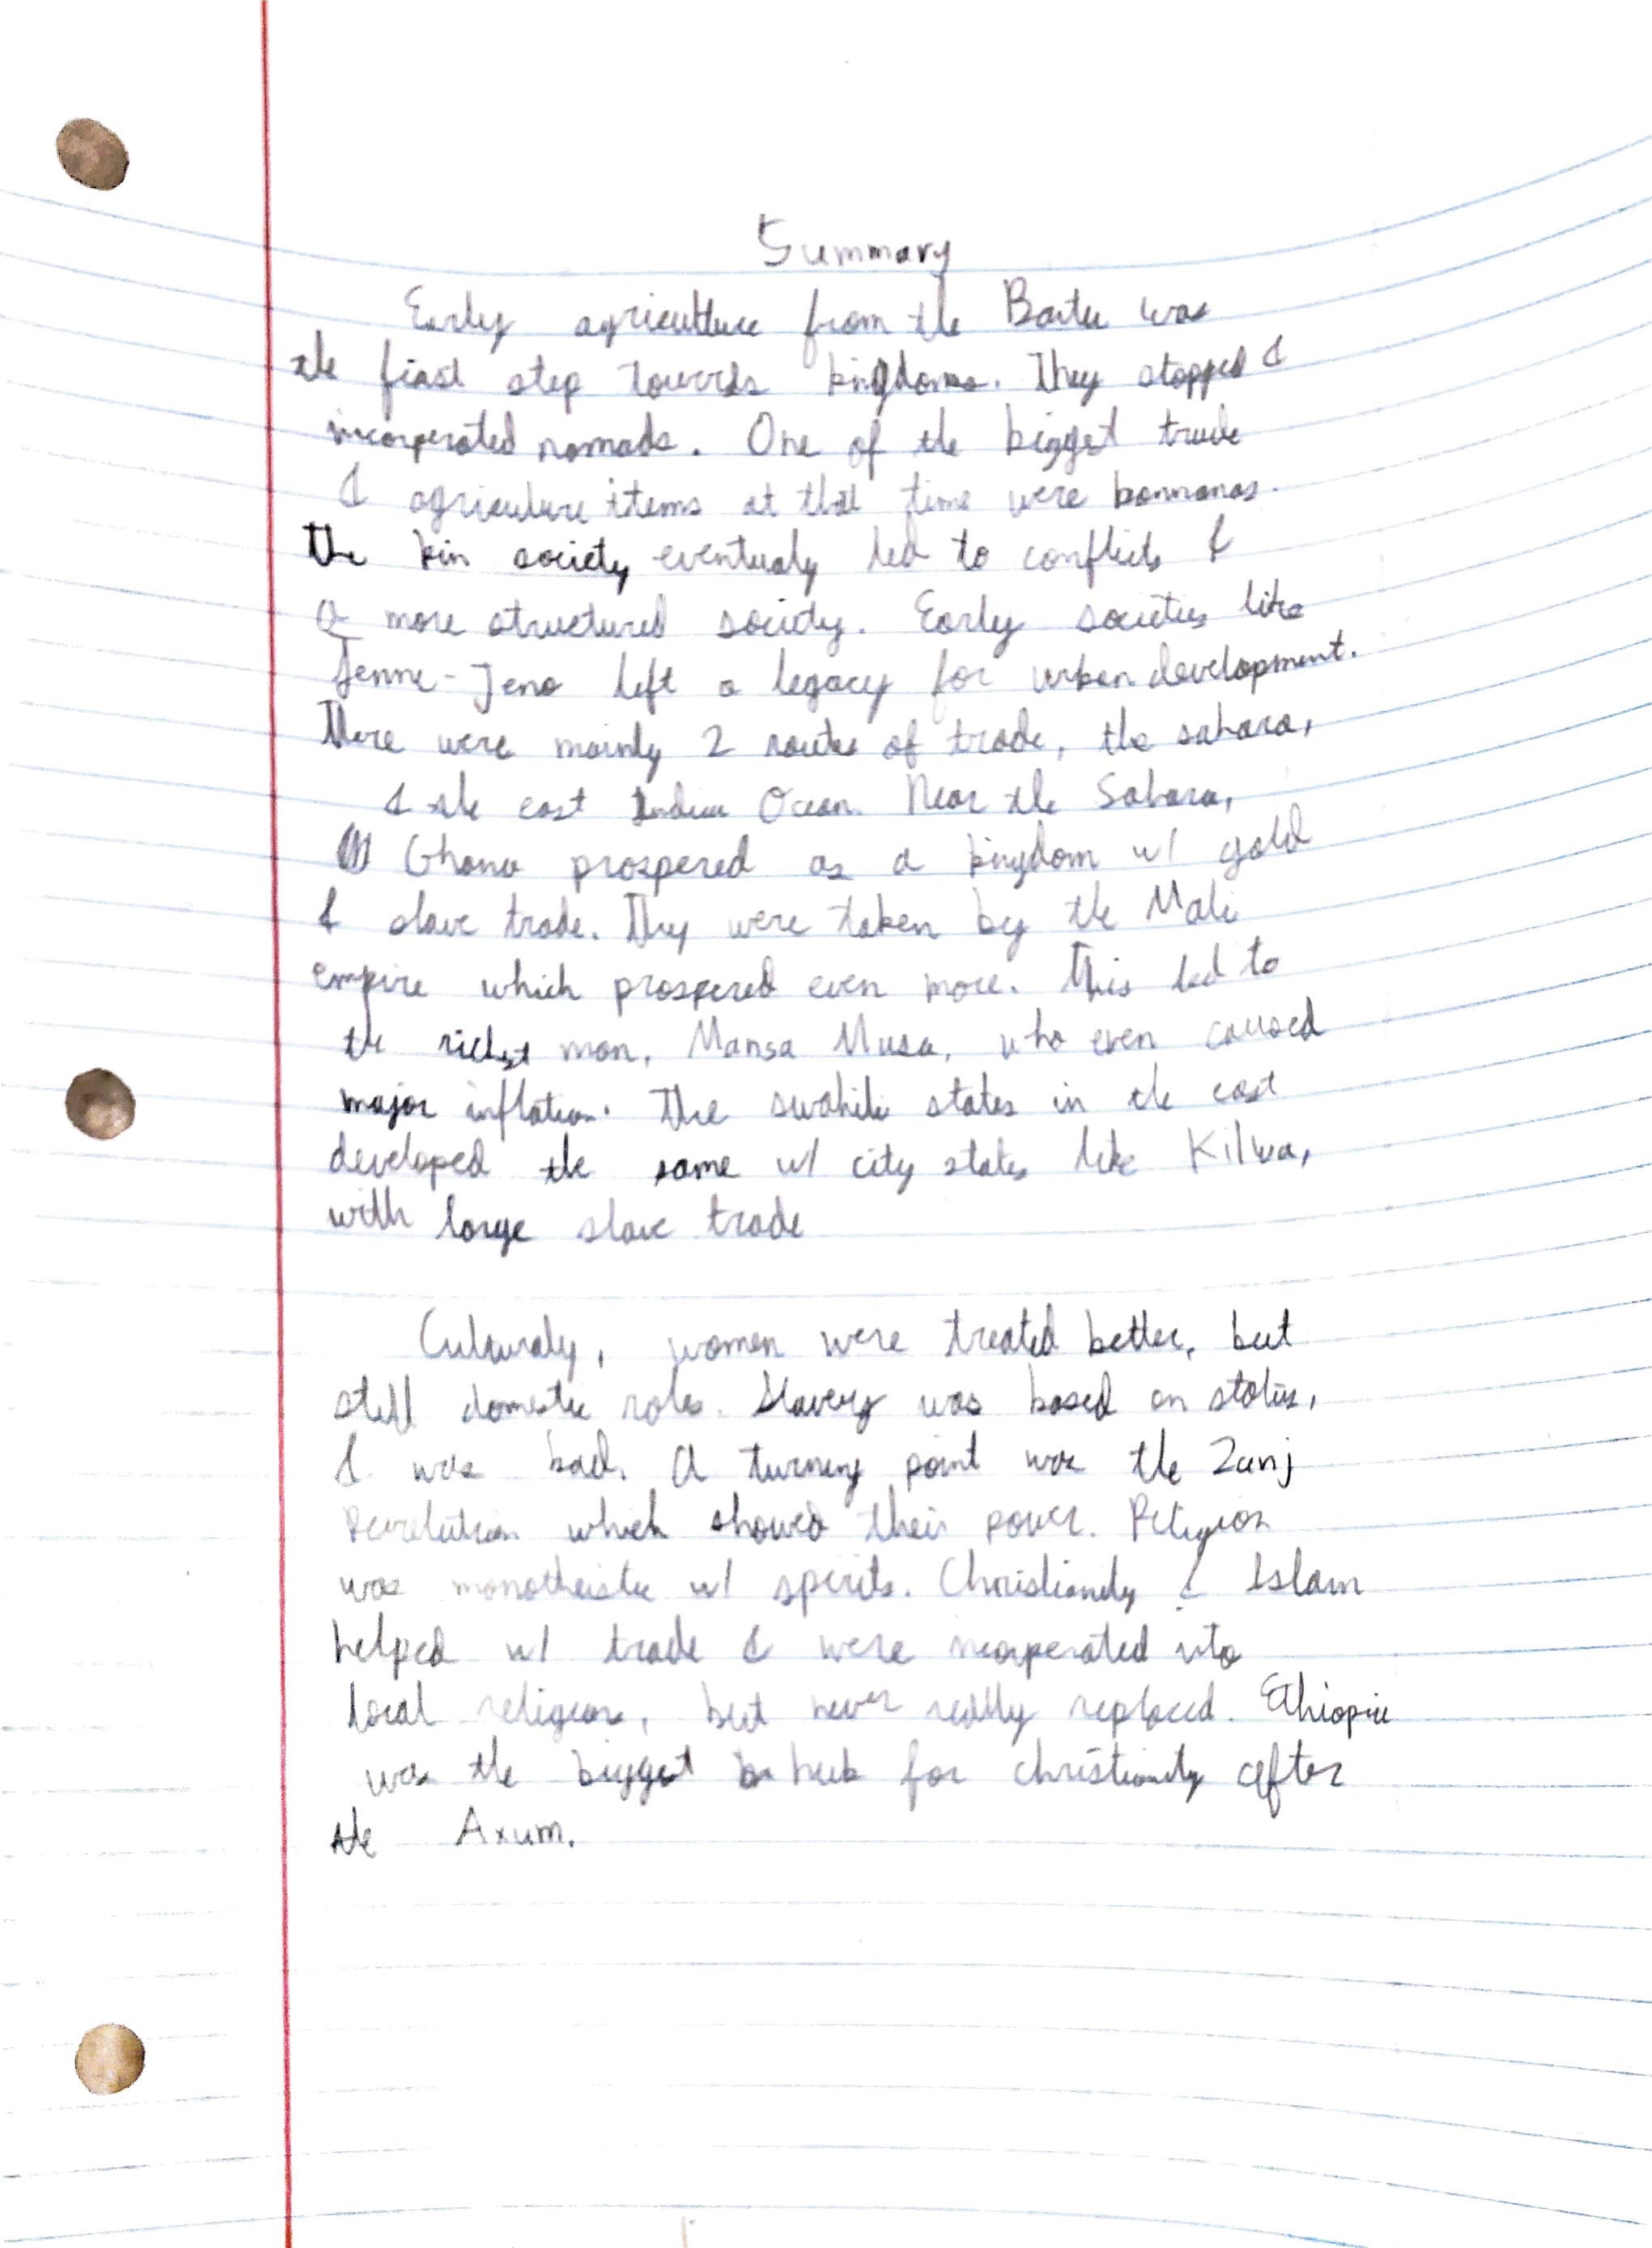 Summary
Early agriculture from the Bantu was
the first step towards kingdoms. They stopped &
incorperated nomads. One of the biggest trade
& agriculture items at that time were bannanas.
The kin society eventualy led to conflicts &
a more structured society. Early societies like
Jenne-Jeno left a legacy for urban development.
There were mainly 2 routes of trade, the sahara,
& the east Indian Ocean. Near the Sahara,
Ghana prospered as a kingdom w/ gold
& slave trade. They were taken by the Mali
empire which prospered even more. This led to
the richest man, Mansa Musa, who even caused
major inflation. The swahili states in the east
developed the same w/ city states like Kilwa,
with large slave trade
Culturaly, women were treated better, but
still domestic roles. Slavery was based on status,
& was bad. A turning point was the Zanj
Revolution which showed their power. Religion
was monotheistic w/ spirits. Christianity & Islam
helped w/ trade & were incorperated into
local religions, but never really replaced. Ethiopia
was the biggest hub for christianity after
the Axum.